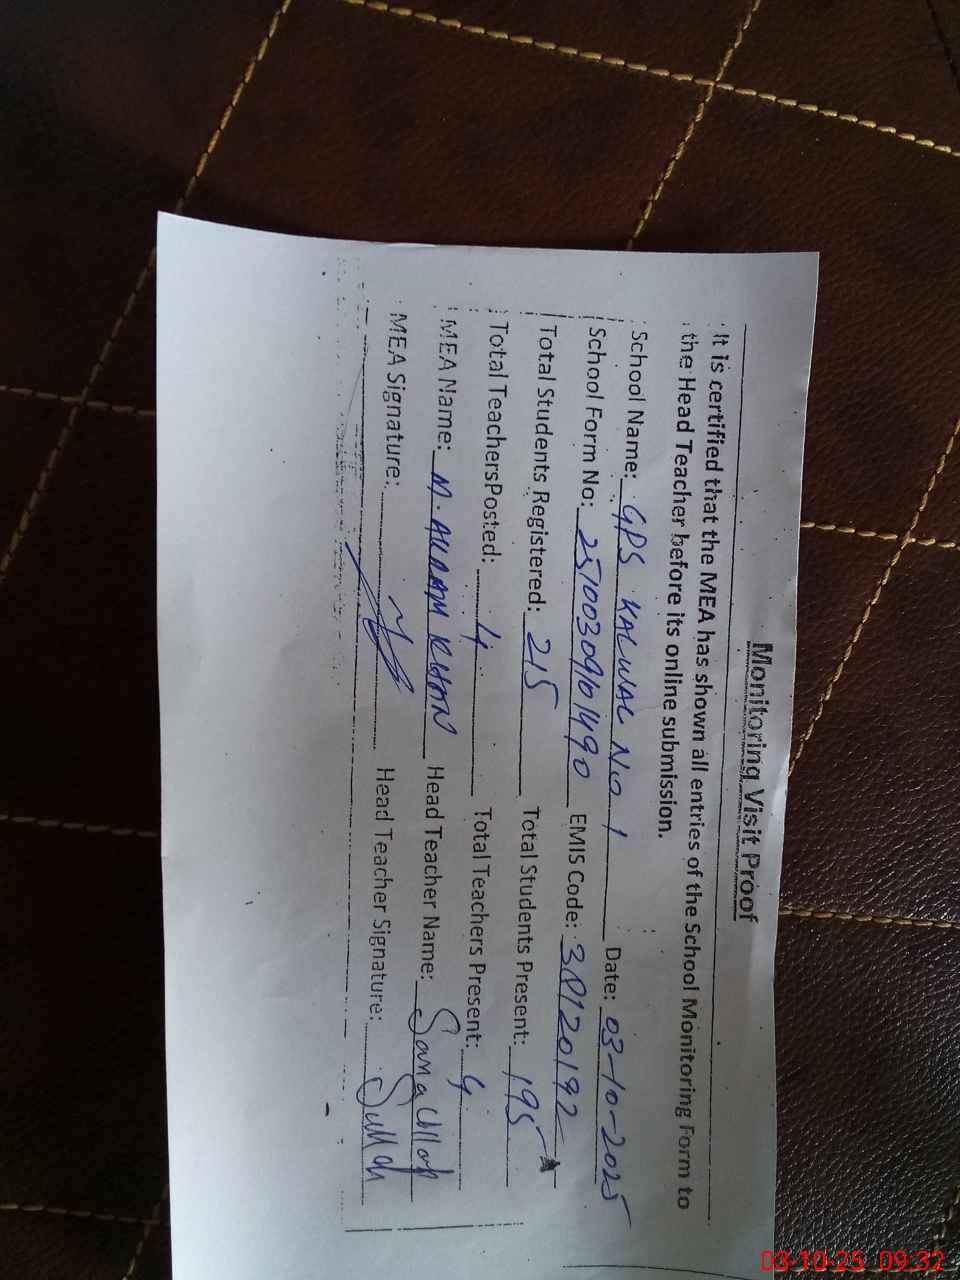 Monitoring Visit Proof
It is certified that the MEA has shown all entries of the School Monitoring Form to
the Head Teacher before its online submission.
School Name: GPS KALWAL NO 1 Date: 03-10-2025
School Form No: 2510030901490 EMIS Code:
Total Students Registered: 215 Total Students Present: 195
Total TeachersPosted: 4 Total Teachers Present: 4
MEA Name: M. AKRAM KHAN Head Teacher Name: Sana Ullah
MEA Signature: Head Teacher Signature:
03-10-25 09:32